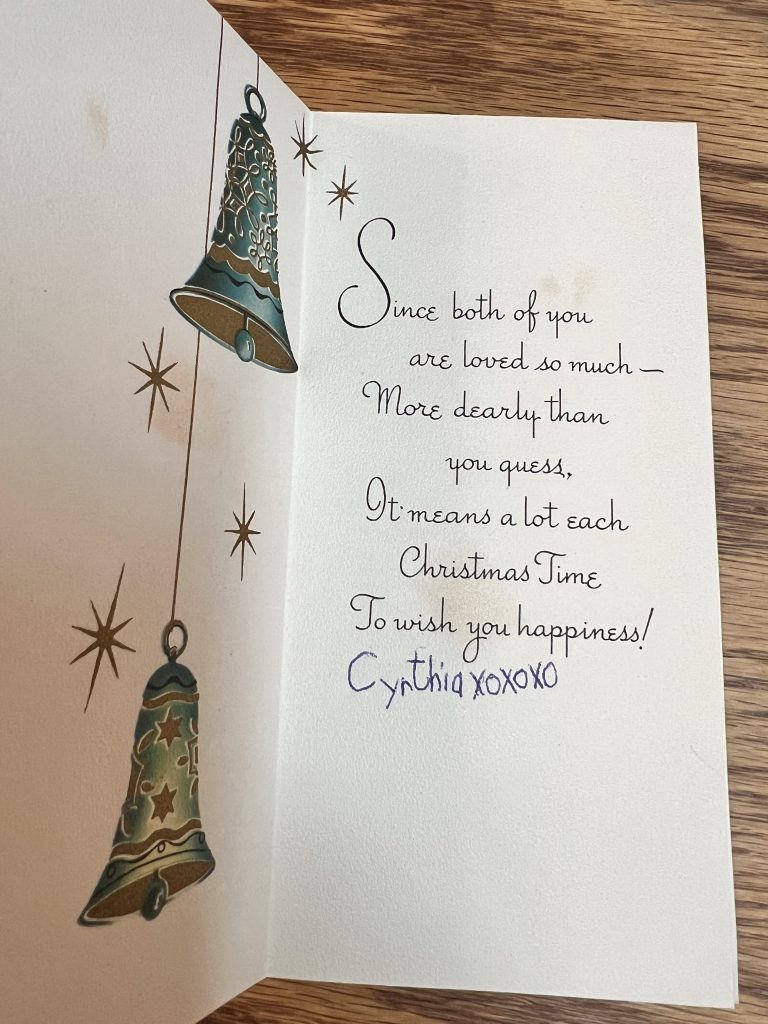 Since both of you
are loved so much —
More dearly than
you guess,
It means a lot each
Christmas Time
To wish you happiness!
Cynthia xoxoxo